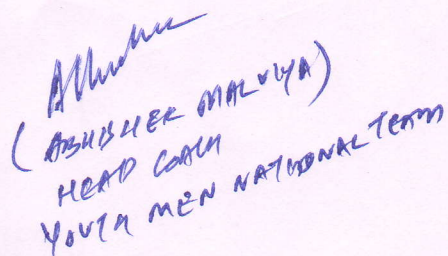 (ABHISHEK MALVIYA)
HEAD COACH
YOUTH MEN NATIONAL TEAM